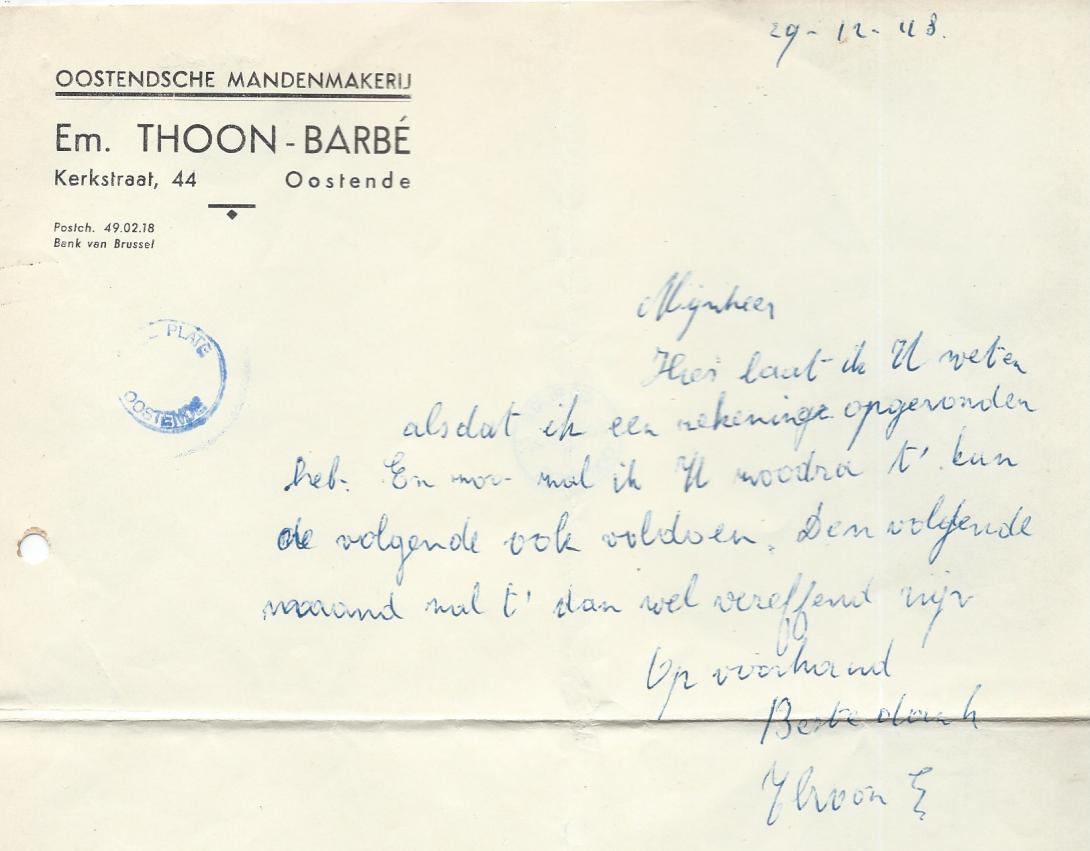 29-12-48.
OOSTENDSCHE MANDENMAKERIJ
Em. THOON-BARBÉ
Kerkstraat, 44 Oostende
Postch. 49.02.18
Bank van Brussel
PLATE
OOSTENDE
Mijnheer
Hier laat ik U weten
alsdat ik een rekening opgevonden
heb. En zal ik U zoodra t' kan
de volgende ook voldoen. Den volgende
maand zal t' dan wel vereffend zijn
Op voorhand
Beste dank
Thoon E